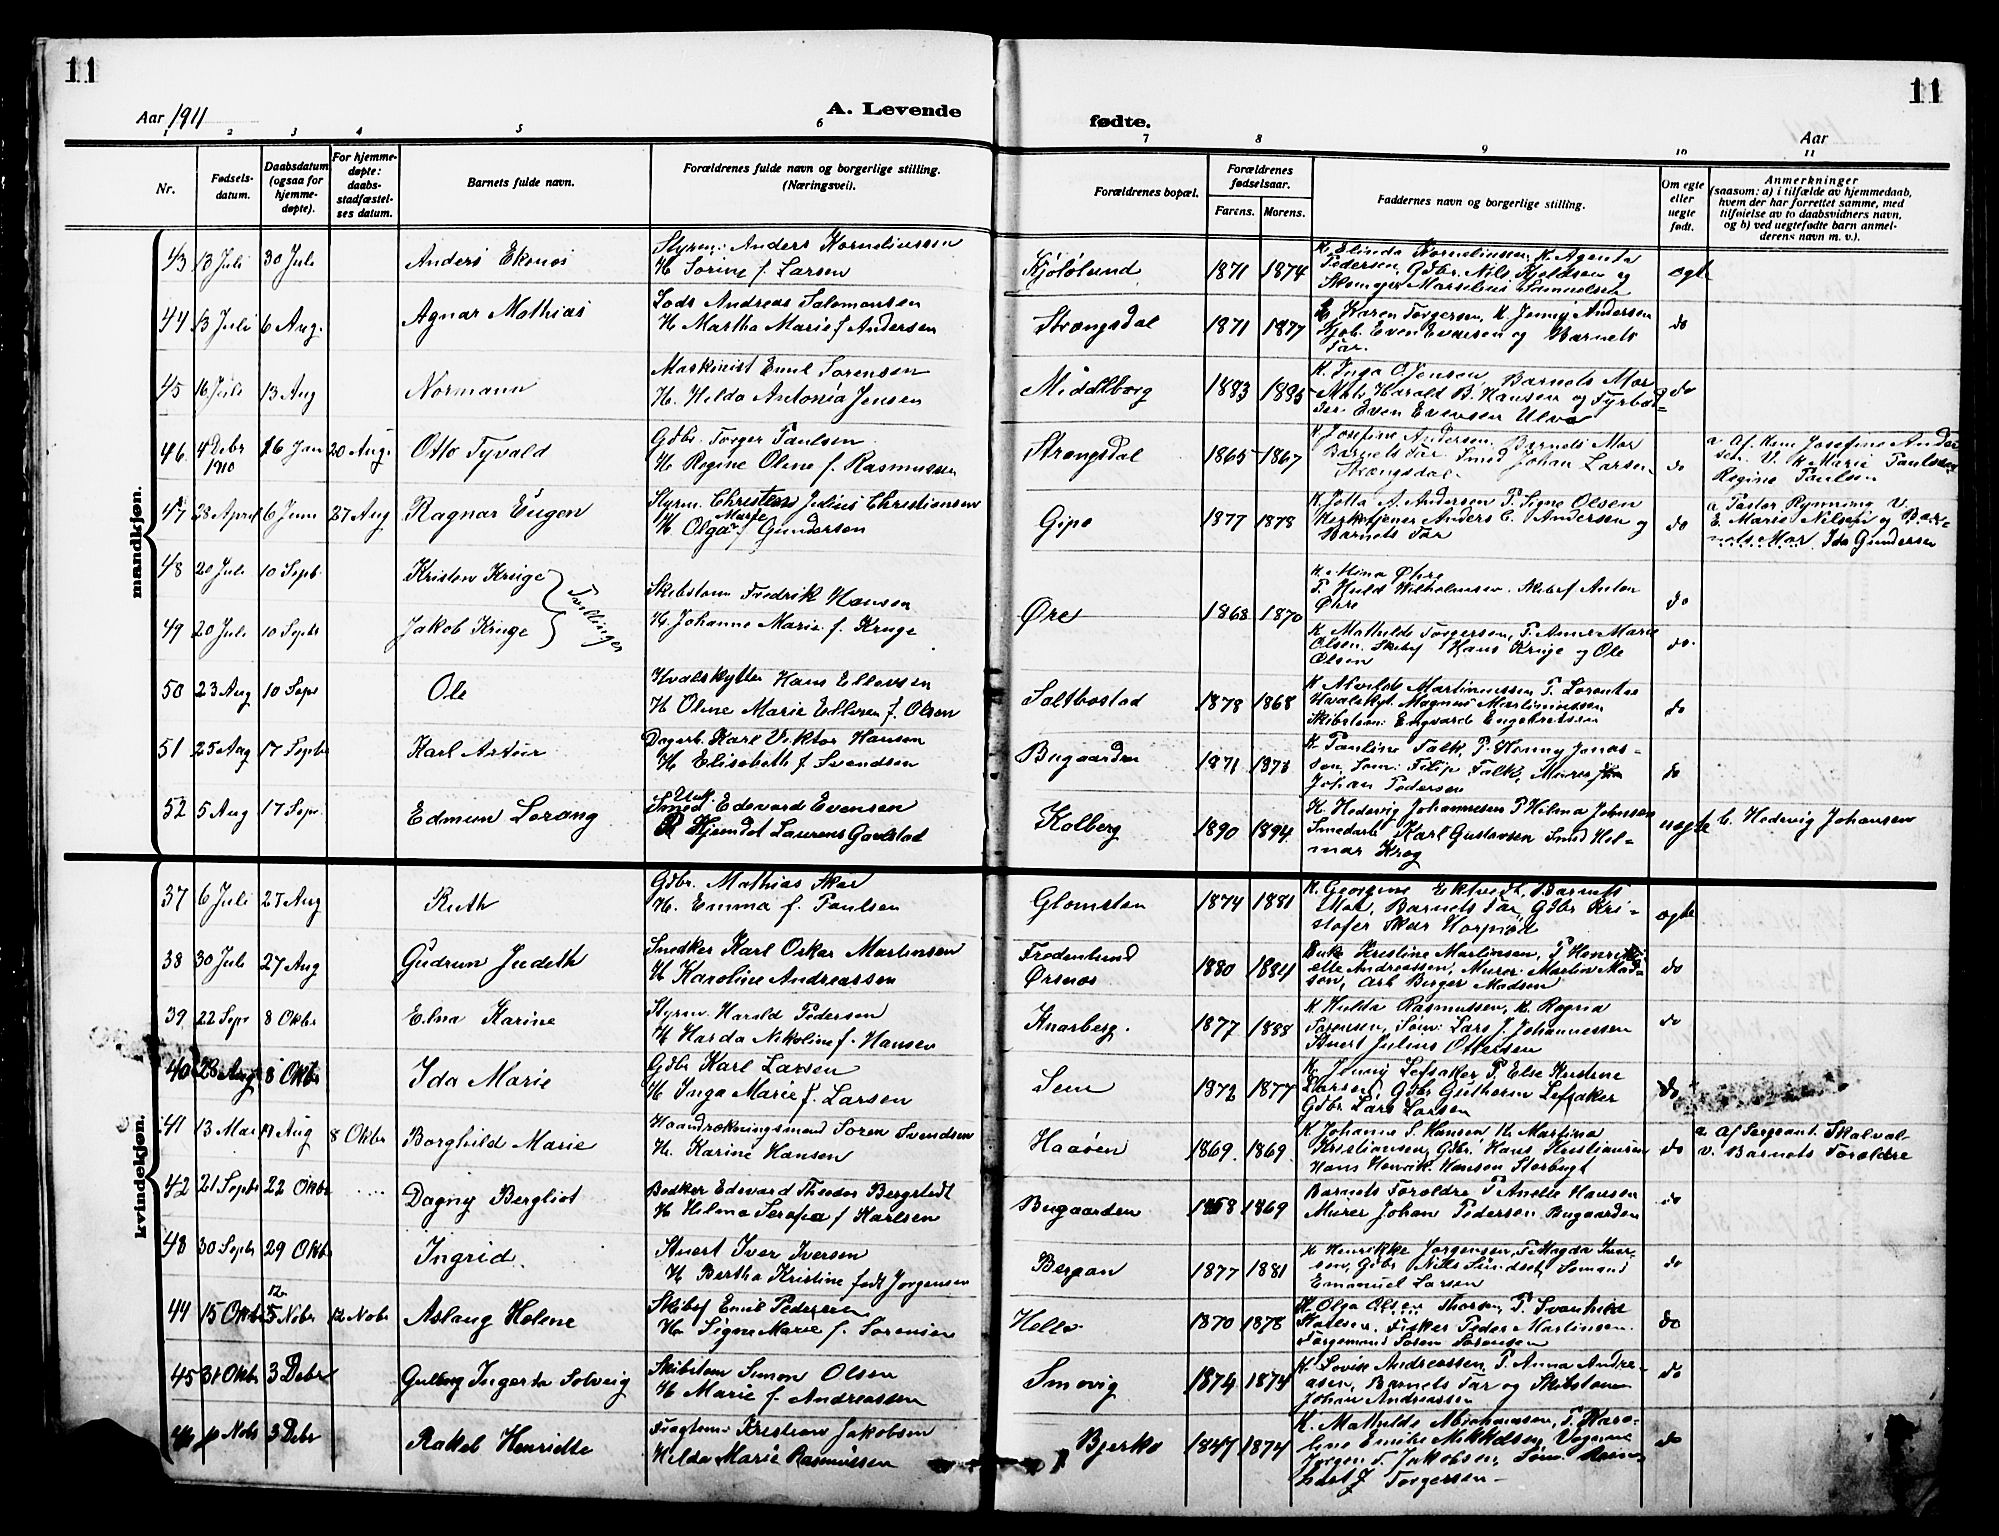 11
11
Aar 1911
A. Levende
fødte.
Aar
1 2 3 4 5 6 7 8 9 10 11
Nr.
Fødsels-
datum.
Daabsdatum
(ogsaa for
hjemme-
døpte).
For hjemme-
døpte:
daabs-
stadfæstel-
ses datum.
Barnets fulde navn.
Forældrenes fulde navn og borgerlige stilling.
(Næringsvei).
Forældrenes bopæl.
Forældrenes
fødselsaar.
Farens. Morens.
Faddernes navn og borgerlige stilling.
Om egte
eller
uegte
født.
Anmerkninger
(saasom: a) i tilfælde av hjemmedaab,
hvem der har forrettet samme, med
tilføielse av to daabsvidners navn,
og b) ved uegtefødte barn anmel-
derens navn m. v.).
mandkjøn.
43 13 Juli 30 Juli Anders Ekenæs
Styrm: Anders Korneliussen
H Sørine f. Larsen
Kjølølund 1871 1874
K. Elinda Kornelius­sen, K. Agenta
Pedersen, Gdbr. Nils Kjeldsen og
Skomager Marselius Samuelsen
egte
44 13 Juli 6 Aug. Agnar Mathias
Lods Andreas Salomonsen
H. Martha Marie f Andersen
Strængsdal 1871 1877
K Karen Torgersen, K. Jenny Andersen
Gjob. Even Evensen og Barnets
Far.
do
45 16 Juli 13 Aug Normann
Maskinist Emil Sørensen
H. Hilda Antonia Jensen
Middelborg 1883 1885
K. Inga O. Jensen, Barnets Mor
Mats. Harald B. Hansen og Fyrbø-
ter Even Evensen Ulvø
do
46. 4 Debr 1910 16 Jan 20 Aug. Otto Tyvald
Gdbr. Torger Paulsen
H. Regine Oline f. Rasmussen
Strengsdal 1865 1867
K Josefine Andersen. Barnets Mor
Barnets Far. Smed Johan Larsen
Strængsdal
do
a. Af Kone Josefine Ander
sen. V. K Marie Paulsen
Regine Paulsen
47 28 April 6 Juni 27 Aug Ragnar Eugen
Styrm. Christen Julius Christiansen
H. Olga Marie f Gundersen
Gipø 1877 1878
K. Jetta A. Andersen P. Signe Olsen
Kirketjener Anders C. Andersen og
Barnets Far
do
a. Pastor Rynning V.
E. Marie Nilsen og Bar-
nets Mor. Ida Gundersen
48 20 Juli 10 Septb. Kristen Krüge
49 20 Juli 10 Septbr Jakob Krüge
Tvillinger
Skibstøm Fredrik Hansen
H. Johanne Marie f. Krüge
Øre 1868 1870
K. Mina Øhre
P. Huld Wilhelmsen. Skibsf Anton
Øhre
do
K Mathilde Torgersen, P. Anne Marie
Olsen. Skibsf Hans Krüge og Ole
Olsen
do.
50 23 Aug 10 Septr Ole
Hvalskytter Hans Ellevsen
H Oline Marie Ellevsen f. Olsen
Saltbostad 1878 1868
K Alvilde Martinussen P. Lorentse
Hvalskyt. Magnus Martinussen
Skibstøm: Engvardt Engebretsen
do
51 25 Aug 17 Septbr Karl Artur
Dagarb. Karl Viktor Hansen
H Elisabeth f Svendsen
Bugaarden 1871 1873
K Pauline Falk, P. Henny Jonas-
sen Søm: Filip Falk, Murer
Johan Pedersen
do
52 5 Aug 17 Septr Edmun Lorang
Unk.
Smed Edvard Evensen
P. Hjemdet Laurens Gaelstad
Kolberg 1890 1894.
K. Hedevig Johannesen P Hilma Johnsen
Smedarb. Karl Gustavsen Smed Hel-
mar Krog
uegte b. Hedevig Johansen
kvindekjøn.
37 6 Juli 27 Aug Ruth
Gdbr. Mathias Skar
H. Emma f. Paulsen
Glomsten 1874 1881
K. Georgine Ektvedt, Barnets
Mor, Barnets Far, Gdbr Kri-
stofer Skar
egte
38 30 Juli 27 Aug Gudrun Judeth
Snedker Karl Oskar Martinsen
H. Karoline Andreassen
Fredenlund
Ørsnes
1880 1884
Enke Kristine Martinsen, P Henri
ette Andreassen, Murer Martin Mad-
sen, Arb Birger Madsen
do
39 22 Septr 8 Oktbr Elna Karine
Styrm. Harald Pedersen
H Harda Nikoline f. Hansen
Knarberg. 1877 1888
K Hulda Rasmussen, K. Ragna
Sørensen, Søm: Lars J. Johannessen
Stuert Julius Ottersen
do
40 28 Aug 8 Oktbr Ida Marie
Gdbr Karl Larsen
H Inga Marie f. Larsen
Sem 1872 1877
K. Jenny Lefsaker P. Else Kristine
Larsen, Gdbr Guthorm Lefsaker
Gdbr Lars Larsen
do
41 13 Mai 17 Aug 8 Oktbr Borghild Marie
Haandrækningsmand Søren Svendsen
H. Karine Hansen
Haaøen 1869. 1869.
K Johanne S. Hansen. K. Martina
Kristiansen, Gdbr. Hans Kristiansen
Hans Henrik Hansen Storbugt
do
a. Af Sergeant. Skalval-
v. Barnets Forældre
42 21 Septbr 22 Oktbr ..... Dagny Bergliot
Bødker Edevard Theodor Bergstedt
H Helma Serafia f Karlsen
Bugaarden 1868 1869
Barnets Forældre P Anette Hansen
Murer Johan Pedersen Bugaarden
do
43 30 Septbr 29 Oktbr Ingrid.
Stuert Iver Iversen
H Bertha Kristine født Jørgensen
Bergan 1877 1881
K Henrikke Jørgensen, P. Magda Iver-
sen, Gdbr Nils Sundset, Sømand
Emanuel Larsen
do
44 15 Oktbr 12 5 Nobr 12 Nobr Aslaug Helene
Skibsf Emil Pedersen
H. Signe Marie f. Sørensen
Helle 1870 1878
K Olga Olsen Thorsø, P. Svanhild
Fisker Peder Martinsen.
Færgemand Søren Sørensen
do
45 31 Oktbr 3 Debr Gulbrg Ingerda Solveig
Skibstøm Simon Olsen
H. Marie f. Andreassen
Smevig 1874 1874
K. Lovise Andreassen, P. Anna Andre-
asen, Barnets Far og Skibstøm
Johan Andreassen
do
46 Nobr 3 Debr Rakel Henriette
Fragtem: Kristian Jakobsen
Hilda Marie Rasmussen
Bjerkø 1847 1874
K. Mathilde Abrahamsen, P. Karo-
line Emilie Mikkelsen
Jørgen F. Jakobsen, Søm. Rein-
hart J Torgersen -
do